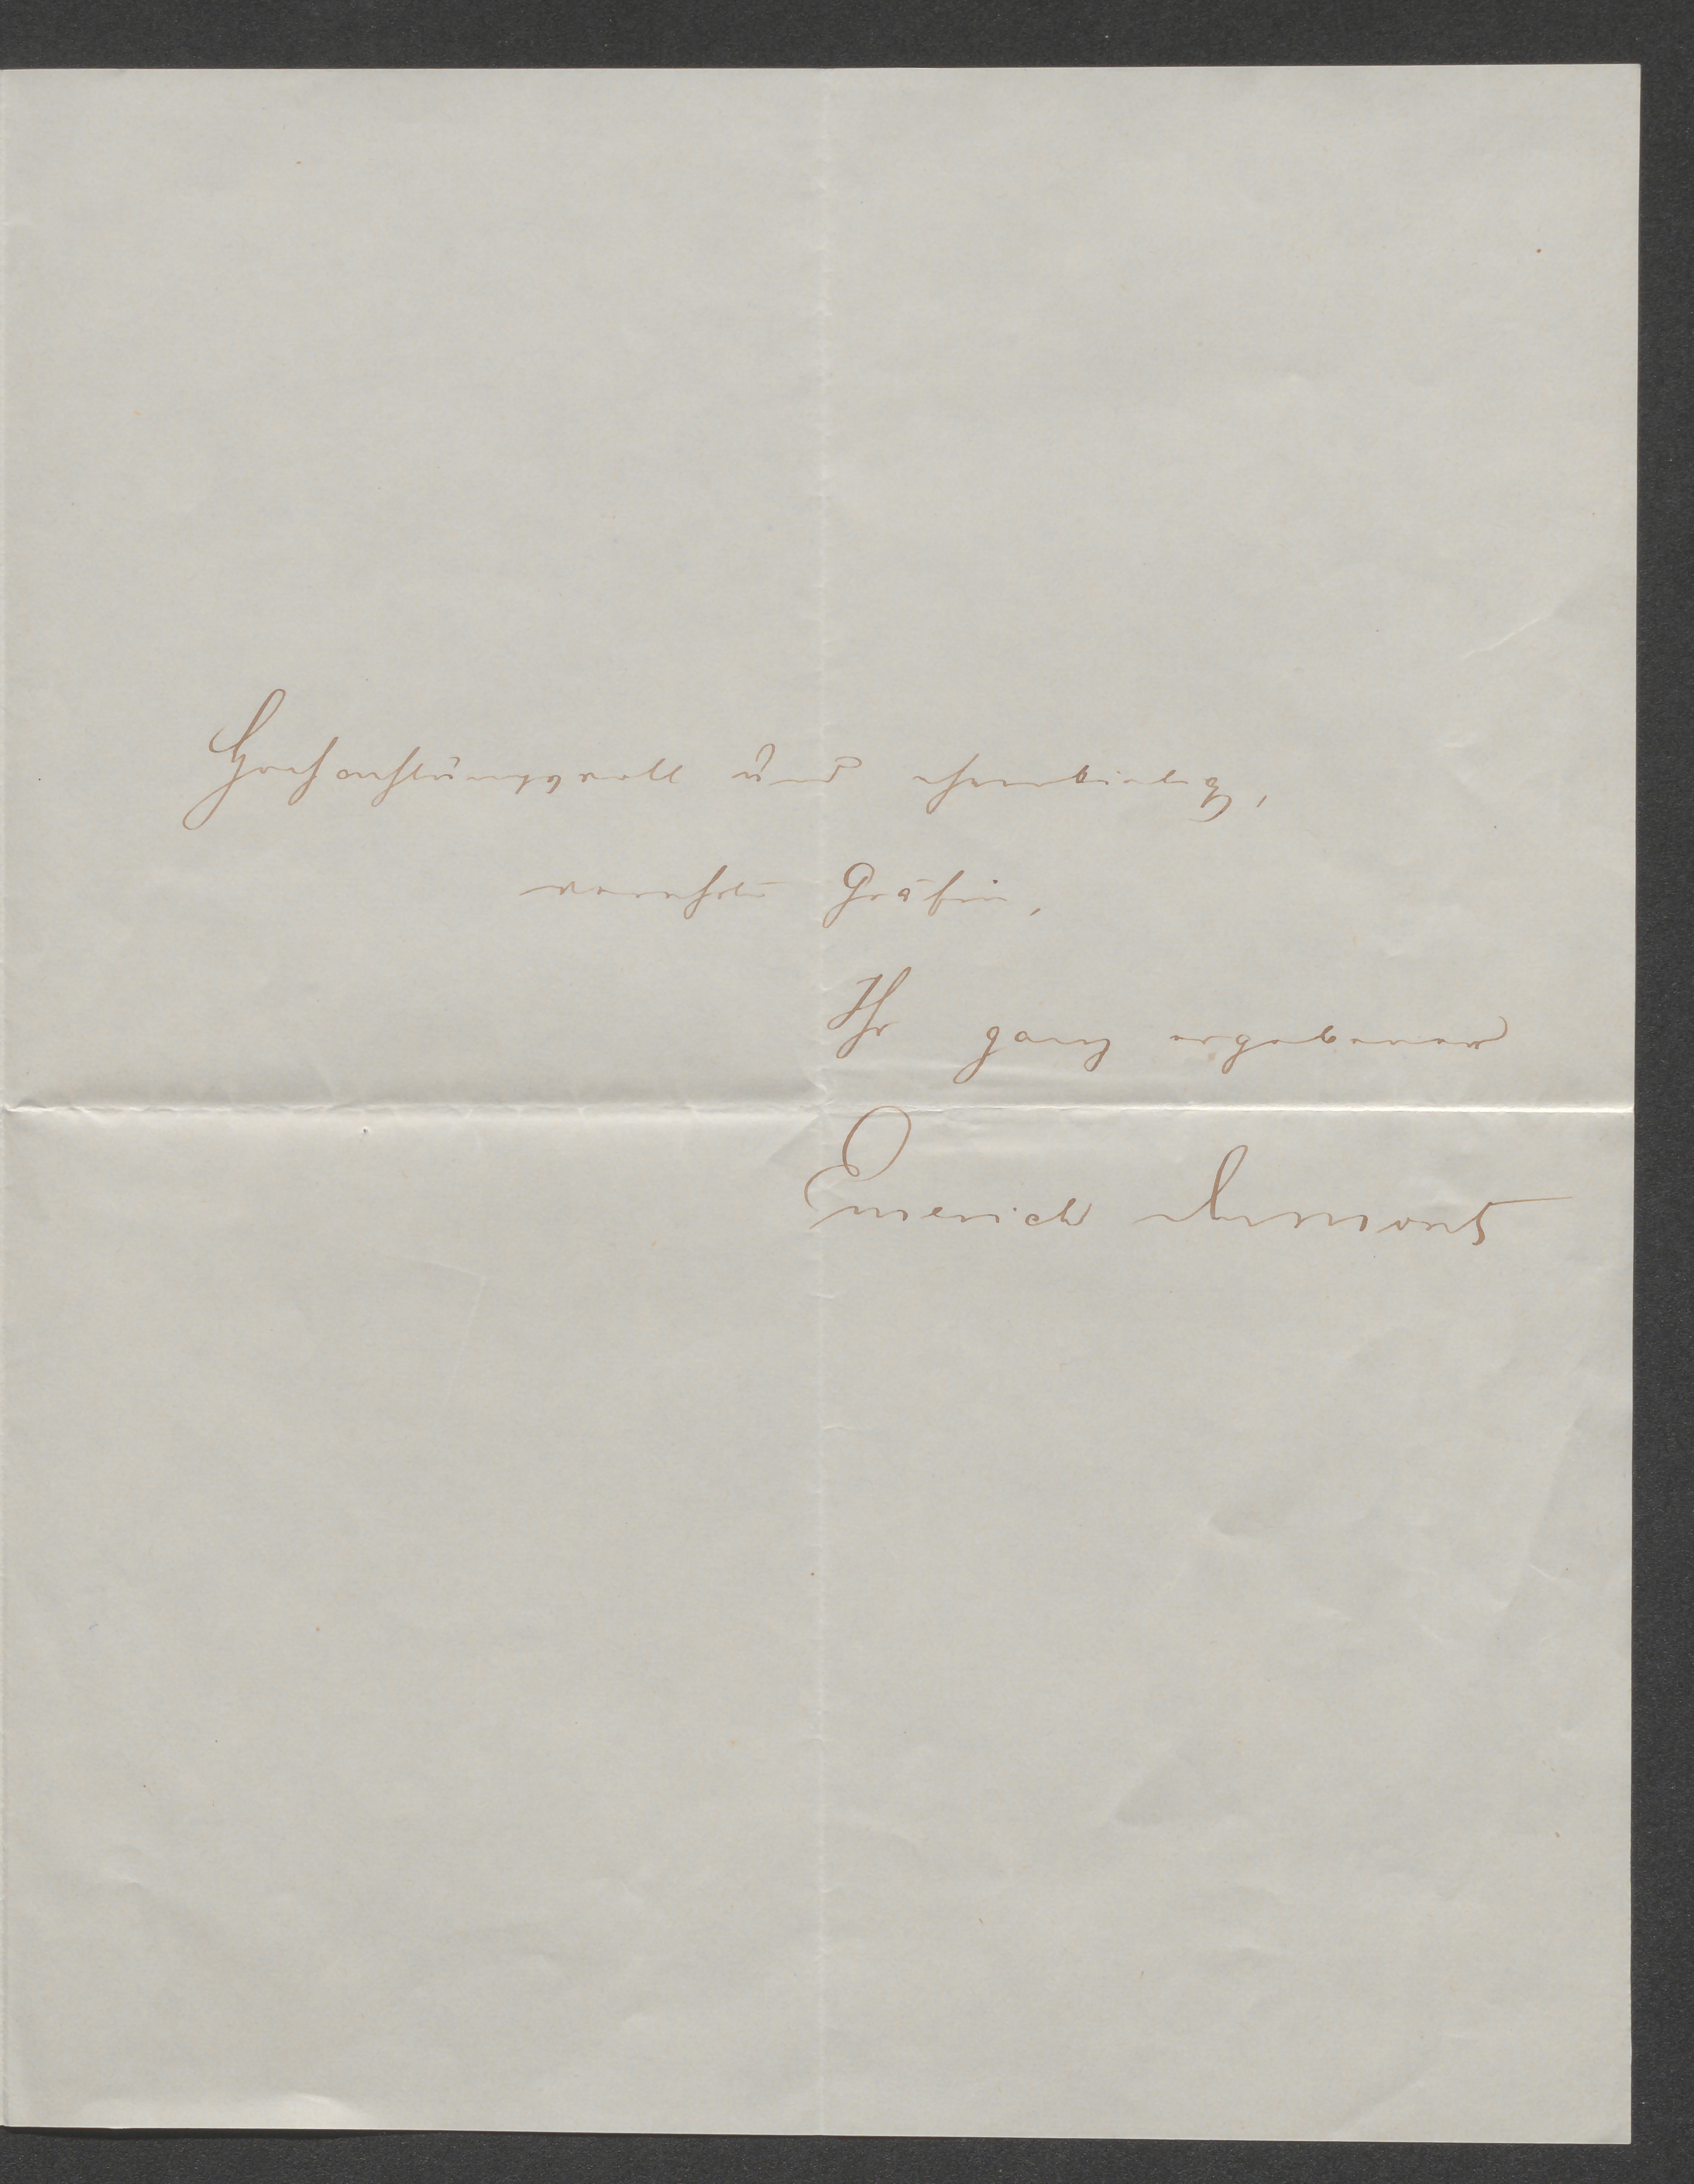 Hochachtungsvoll und ehrerbietig,
verehrte Gräfin,
Ihr ganz ergebener
Emerich